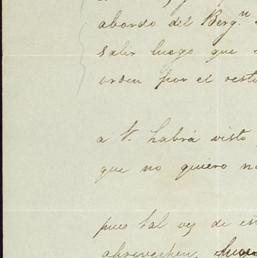 abordo del Berg.n
salir luego que
orden por el resto
a V. habrá visto
que no quiero
pues tal vez de